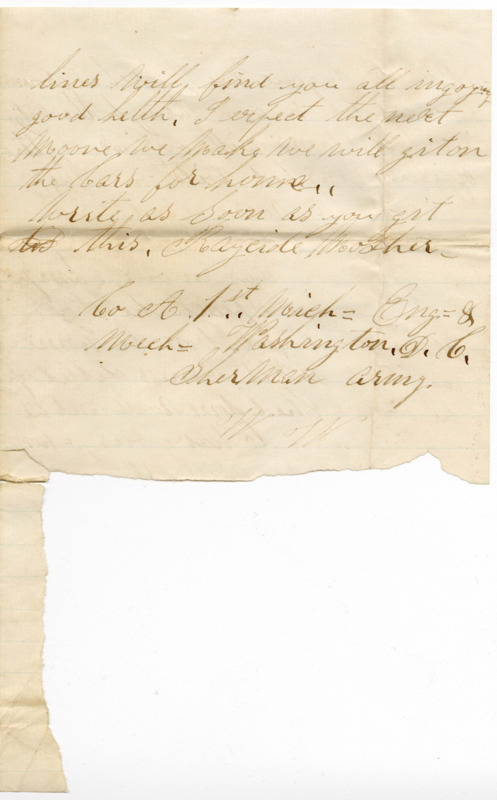 lines will find you all ingoying
good helth. I expect the next
Moove we Make we will git on
the Cars for home..
Write as Soon as you git
this. Mother
Co A. 1st.. Mich= Eng= &
Mech= Washington. D. C.
Sherman army.
W W